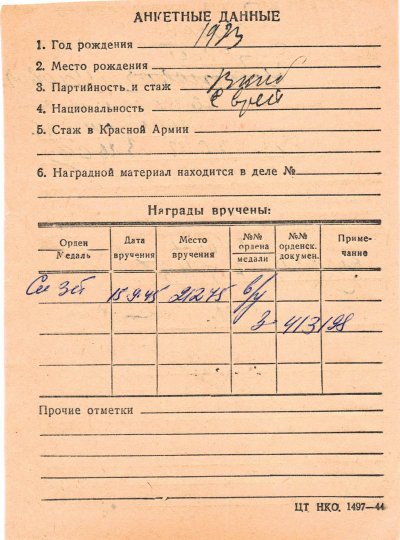 АНКЕТНЫЕ ДАННЫЕ
1. Год рождения 1923
2. Место рождения
3. Партийность и стаж ВКПб
4. Национальность Еврей
5. Стаж в Красной Армии
6. Наградной материал находится в деле №
Награды вручены:
Орден Медаль | Дата вручения | Место вручения | №№ ордена медали | №№ орденск. докумен. | Приме- чание
15.9.45 21275 б/у
413198
Прочие отметки
ЦТ НКО. 1497—44